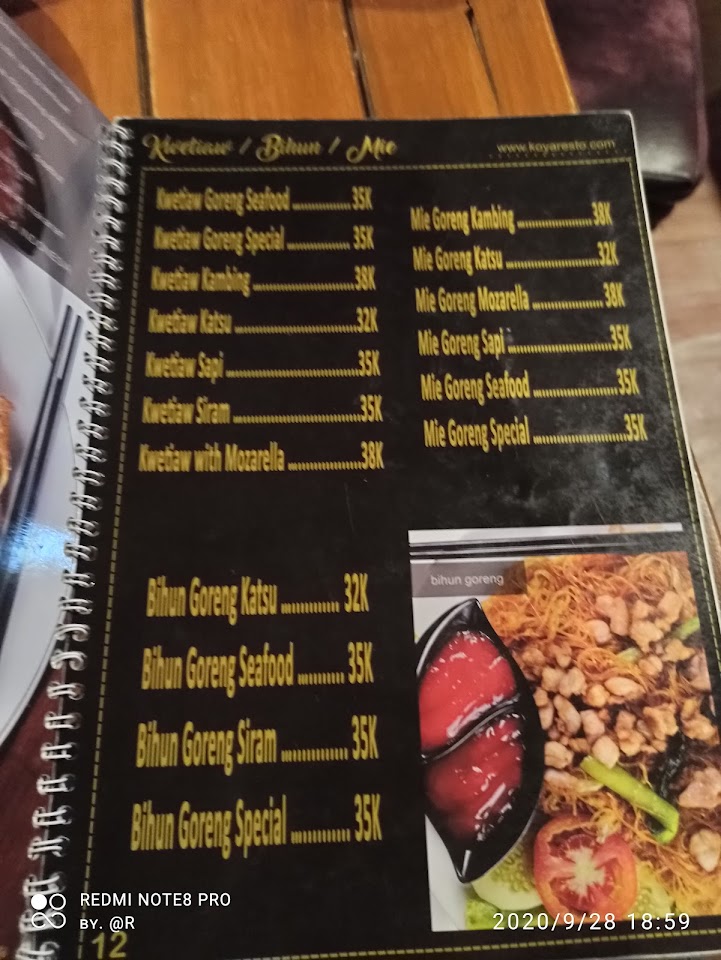 Kwetiaw / Bihun / Mie
www.kayaresto.com
Kwetiaw Goreng Seafood ............... 35K
Kwetiaw Goreng Special ............... 35K
Kwetiaw Kambing ......................... 38K
Kwetiaw Katsu ............................. 32K
Kwetiaw Sapi ............................... 35K
Kwetiaw Siram ............................. 35K
Kwetiaw with Mozarella .................. 38K
Mie Goreng Kambing ................... 38K
Mie Goreng Katsu ....................... 32K
Mie Goreng Mozarella ................. 38K
Mie Goreng Sapi ......................... 35K
Mie Goreng Seafood .................... 35K
Mie Goreng Special ..................... 35K
Bihun Goreng Katsu ............. 32K
Bihun Goreng Seafood .......... 35K
Bihun Goreng Siram .............. 35K
Bihun Goreng Special ............ 35K
bihun goreng
12
REDMI NOTE8 PRO
BY. @R
2020/9/28 18:59